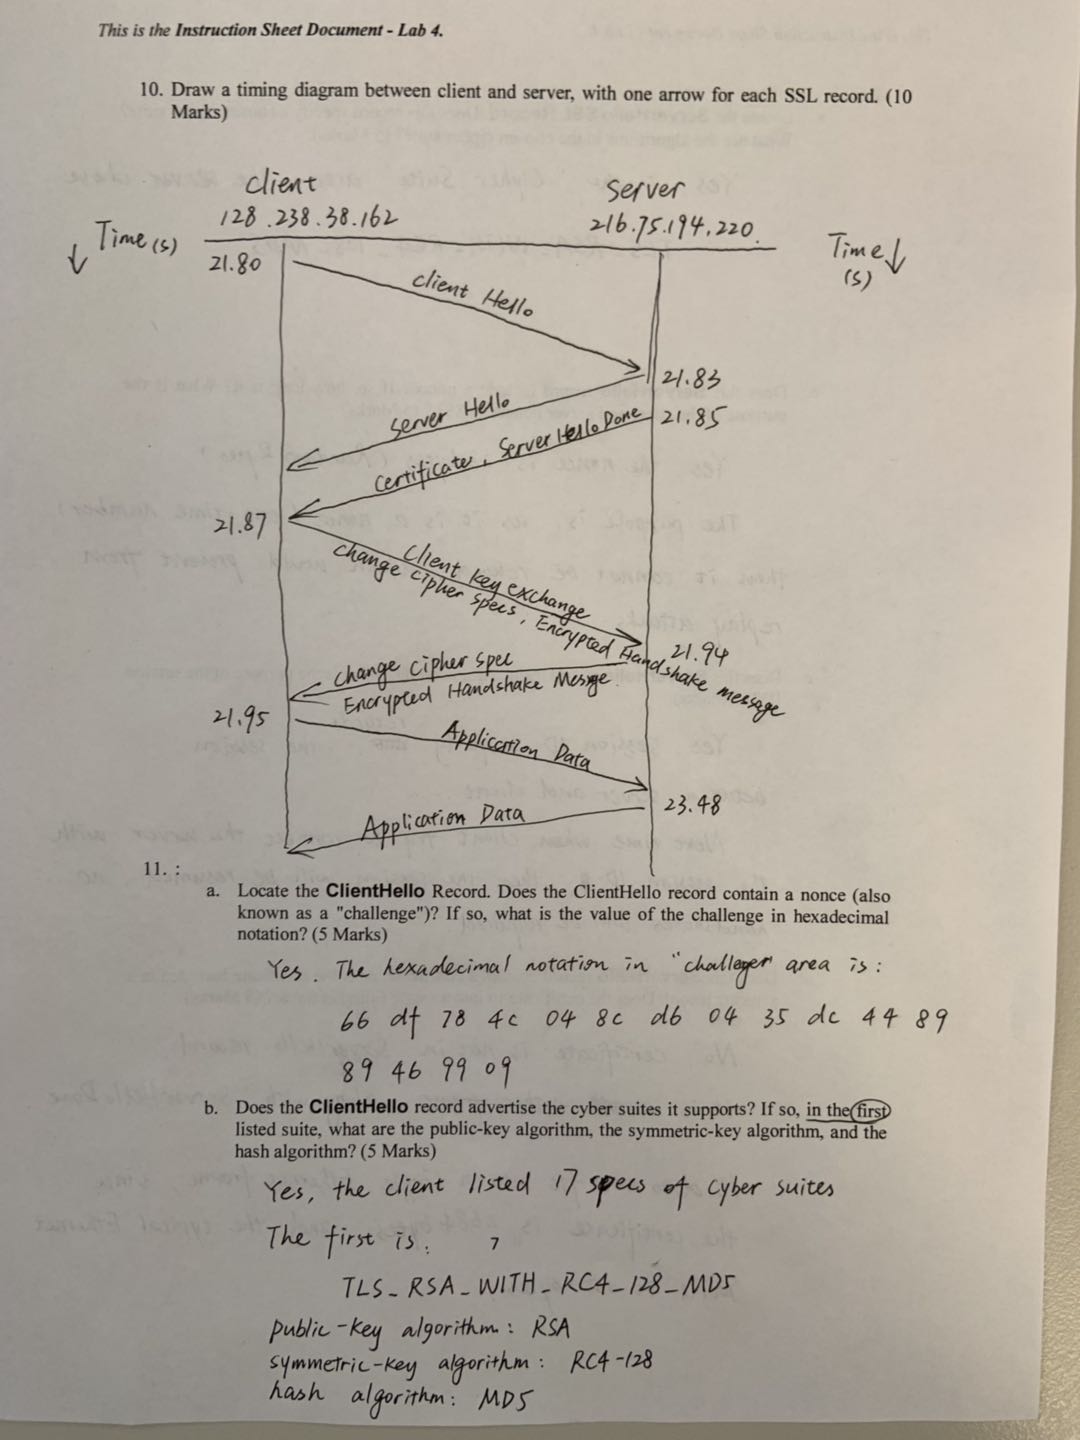 This is the Instruction Sheet Document - Lab 4.
10. Draw a timing diagram between client and server, with one arrow for each SSL record. (10
Marks)
client
server
128.238.38.162
216.75.194.220
Time (s)
Time
(s)
21.80
client Hello
21.83
server Hello
21.85
certificate, Server Hello Done
21.87
client key exchange
change cipher specs, Encrypted Handshake message
21.94
change cipher spec
Encrypted Handshake Mesge
21.95
Application Data
23.48
Application Data
11. :
a. Locate the ClientHello Record. Does the ClientHello record contain a nonce (also
known as a "challenge")? If so, what is the value of the challenge in hexadecimal
notation? (5 Marks)
Yes. The hexadecimal notation in "challeger" area is:
66 df 78 4c 04 8c d6 04 35 dc 44 89
89 46 99 09
b. Does the ClientHello record advertise the cyber suites it supports? If so, in the first
listed suite, what are the public-key algorithm, the symmetric-key algorithm, and the
hash algorithm? (5 Marks)
Yes, the client listed 17 specs of cyber suites
The first is: 7
TLS_RSA_WITH_RC4_128_MD5
public-key algorithm: RSA
symmetric-key algorithm: RC4-128
hash algorithm: MD5